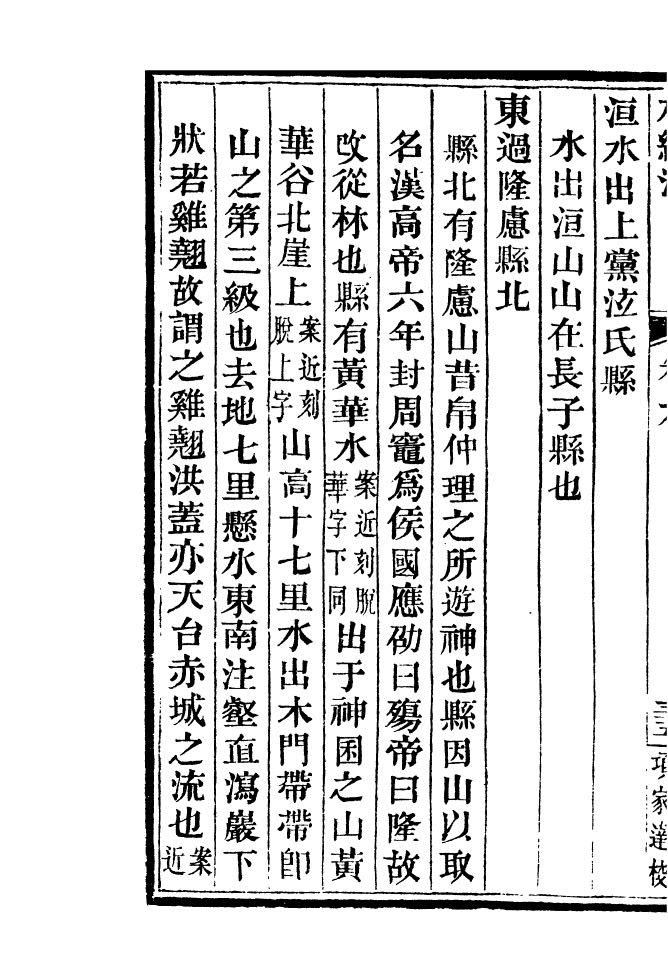 洹水出上黨泫氏縣
水出洹山山在長子縣也
東過隆慮縣北
縣北有隆慮山昔帛仲理之所遊神也縣因山以取
名漢高帝六年封周竈爲侯國應劭曰殤帝曰隆故
改從林也縣有黃華水案近刻脫華字下同出于神囷之山黃
華谷北崖上案近刻脫上字山高十七里水出木門帶帶卽
山之第三級也去地七里懸水東南注壑直瀉巖下
狀若雞翹故謂之雞翹洪蓋亦天台赤城之流也案近